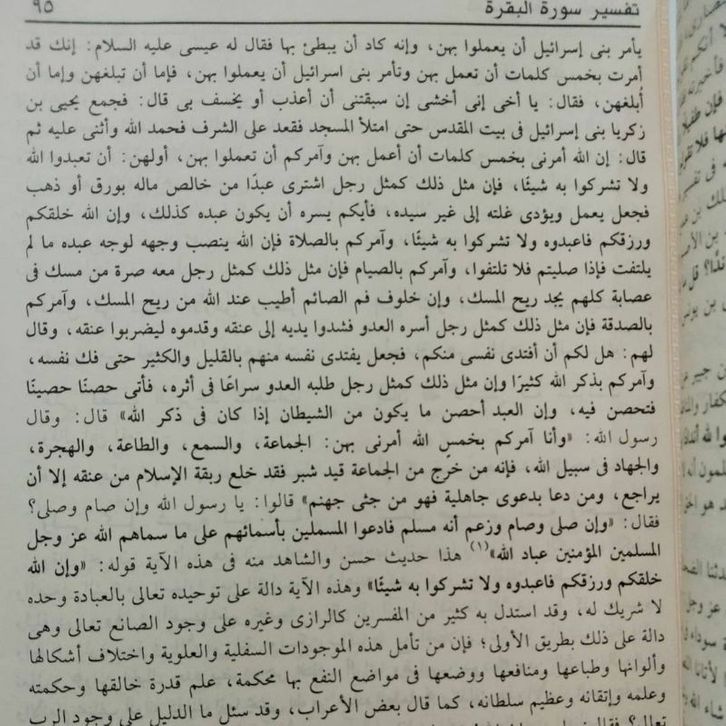 تفسير سورة البقرة ٩٥
يأمر بنى إسرائيل أن يعملوا بهن، وإنه كاد أن يبطئ بها فقال له عيسى عليه السلام: إنك قد
أمرت بخمس كلمات أن تعمل بهن وتأمر بنى اسرائيل أن يعملوا بهن، فإما أن تبلغهن وإما أن
أبلغهن، فقال: يا أخى إنى أخشى إن سبقتنى أن أعذب أو يخسف بى قال: فجمع يحيى بن
زكريا بنى إسرائيل فى بيت المقدس حتى امتلأ المسجد فقعد على الشرف فحمد الله وأثنى عليه ثم
قال: إن الله أمرنى بخمس كلمات أن أعمل بهن وآمركم أن تعملوا بهن، أولهن: أن تعبدوا الله
ولا تشركوا به شيئًا، فإن مثل ذلك كمثل رجل اشترى عبدًا من خالص ماله بورق أو ذهب
فجعل يعمل ويؤدى غلته إلى غير سيده، فأيكم يسره أن يكون عبده كذلك، وإن الله خلقكم
ورزقكم فاعبدوه ولا تشركوا به شيئًا، وآمركم بالصلاة فإن الله ينصب وجهه لوجه عبده ما لم
يلتفت فإذا صليتم فلا تلتفتوا، وآمركم بالصيام فإن مثل ذلك كمثل رجل معه صرة من مسك فى
عصابة كلهم يجد ريح المسك، وإن خلوف فم الصائم أطيب عند الله من ريح المسك، وآمركم
بالصدقة فإن مثل ذلك كمثل رجل أسره العدو فشدوا يديه إلى عنقه وقدموه ليضربوا عنقه، وقال
لهم: هل لكم أن أفتدى نفسى منكم، فجعل يفتدى نفسه منهم بالقليل والكثير حتى فك نفسه،
وآمركم بذكر الله كثيرًا وإن مثل ذلك كمثل رجل طلبه العدو سراعًا فى أثره، فأتى حصنًا حصينًا
فتحصن فيه، وإن العبد أحصن ما يكون من الشيطان إذا كان فى ذكر الله» قال: وقال
رسول الله: «وأنا آمركم بخمس الله أمرنى بهن: الجماعة، والسمع، والطاعة، والهجرة،
والجهاد فى سبيل الله، فإنه من خرج من الجماعة قيد شبر فقد خلع ربقة الإسلام من عنقه إلا أن
يراجع، ومن دعا بدعوى جاهلية فهو من جثى جهنم» قالوا: يا رسول الله وإن صام وصلى؟
فقال: «وإن صلى وصام وزعم أنه مسلم فادعوا المسملين بأسمائهم على ما سماهم الله عز وجل
المسلمين المؤمنين عباد الله»(١) هذا حديث حسن والشاهد منه فى هذه الآية قوله: «وإن الله
خلقكم ورزقكم فاعبدوه ولا تشركوا به شيئًا» وهذه الآية دالة على توحيده تعالى بالعبادة وحده
لا شريك له، وقد استدل به كثير من المفسرين كالرازى وغيره على وجود الصانع تعالى وهى
دالة على ذلك بطريق الأولى؛ فإن من تأمل هذه الموجودات السفلية والعلوية واختلاف أشكالها
وألوانها وطباعها ومنافعها ووضعها فى مواضع النفع بها محكمة، علم قدرة خالقها وحكمته
وعلمه وإتقانه وعظيم سلطانه، كما قال بعض الأعراب، وقد سئل ما الدليل على وجود الرب